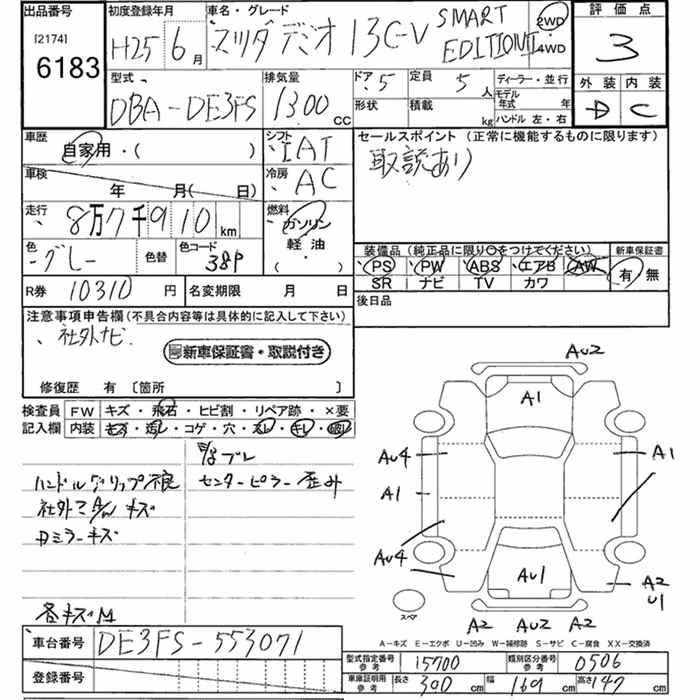 出品番号 初度登録年月 車名・グレード 評価点
[2174] H25年 6月 マツダ デミオ 13C-V SMART EDITION II 2WD 4WD 3
6183
型式 排気量 ドア 定員 ディーラー・並行 外装 内装
DBA-DE3FS 1300 CC 5 5人 モデル年式 年 D C
形状 積載 kg ハンドル 左・右
車歴 シフト セールスポイント (正常に機能するものに限ります)
自家用・( ) IAT 取説あり
車検 冷房
年 月( 日) AC
走行 燃料
8万7千910km ガソリン
色 色替 色コード 軽油 装備品 (純正品に限り○をつけてください) 新車保証書
グレー 38P ・( ) PS PW ABS エアB AW 有 無
SR ナビ TV カワ
R券 10310円 名変期限 月 日 後日品
注意事項申告欄 (不具合内容等は具体的に記入して下さい)
社外ナビ
新車保証書・取説付き
修復歴 有 〔箇所 〕
検査員 FW キズ・飛石・ヒビ割・リペア跡・×要
記入欄 内装 キズ・汚レ・コゲ・穴・スレ・キレ・
ハンドルグリップ不良 センターピラー歪み
社外アAW キズ
Dミラーキズ
各キズM
AU2
A1
AU4 A1
A1
AU4
AU1 A2
U1
スペア
A2 AU2 A2
A-キズ E-エクボ U-凹み W-補修跡 S-サビ C-腐食 XX-交換済
車台番号 DE3FS-553071
型式指定番号 参考 15700 類別区分番号 参考 0506
登録番号
車庫証明用 参考 長さ 390cm 幅 169cm 高さ 147cm